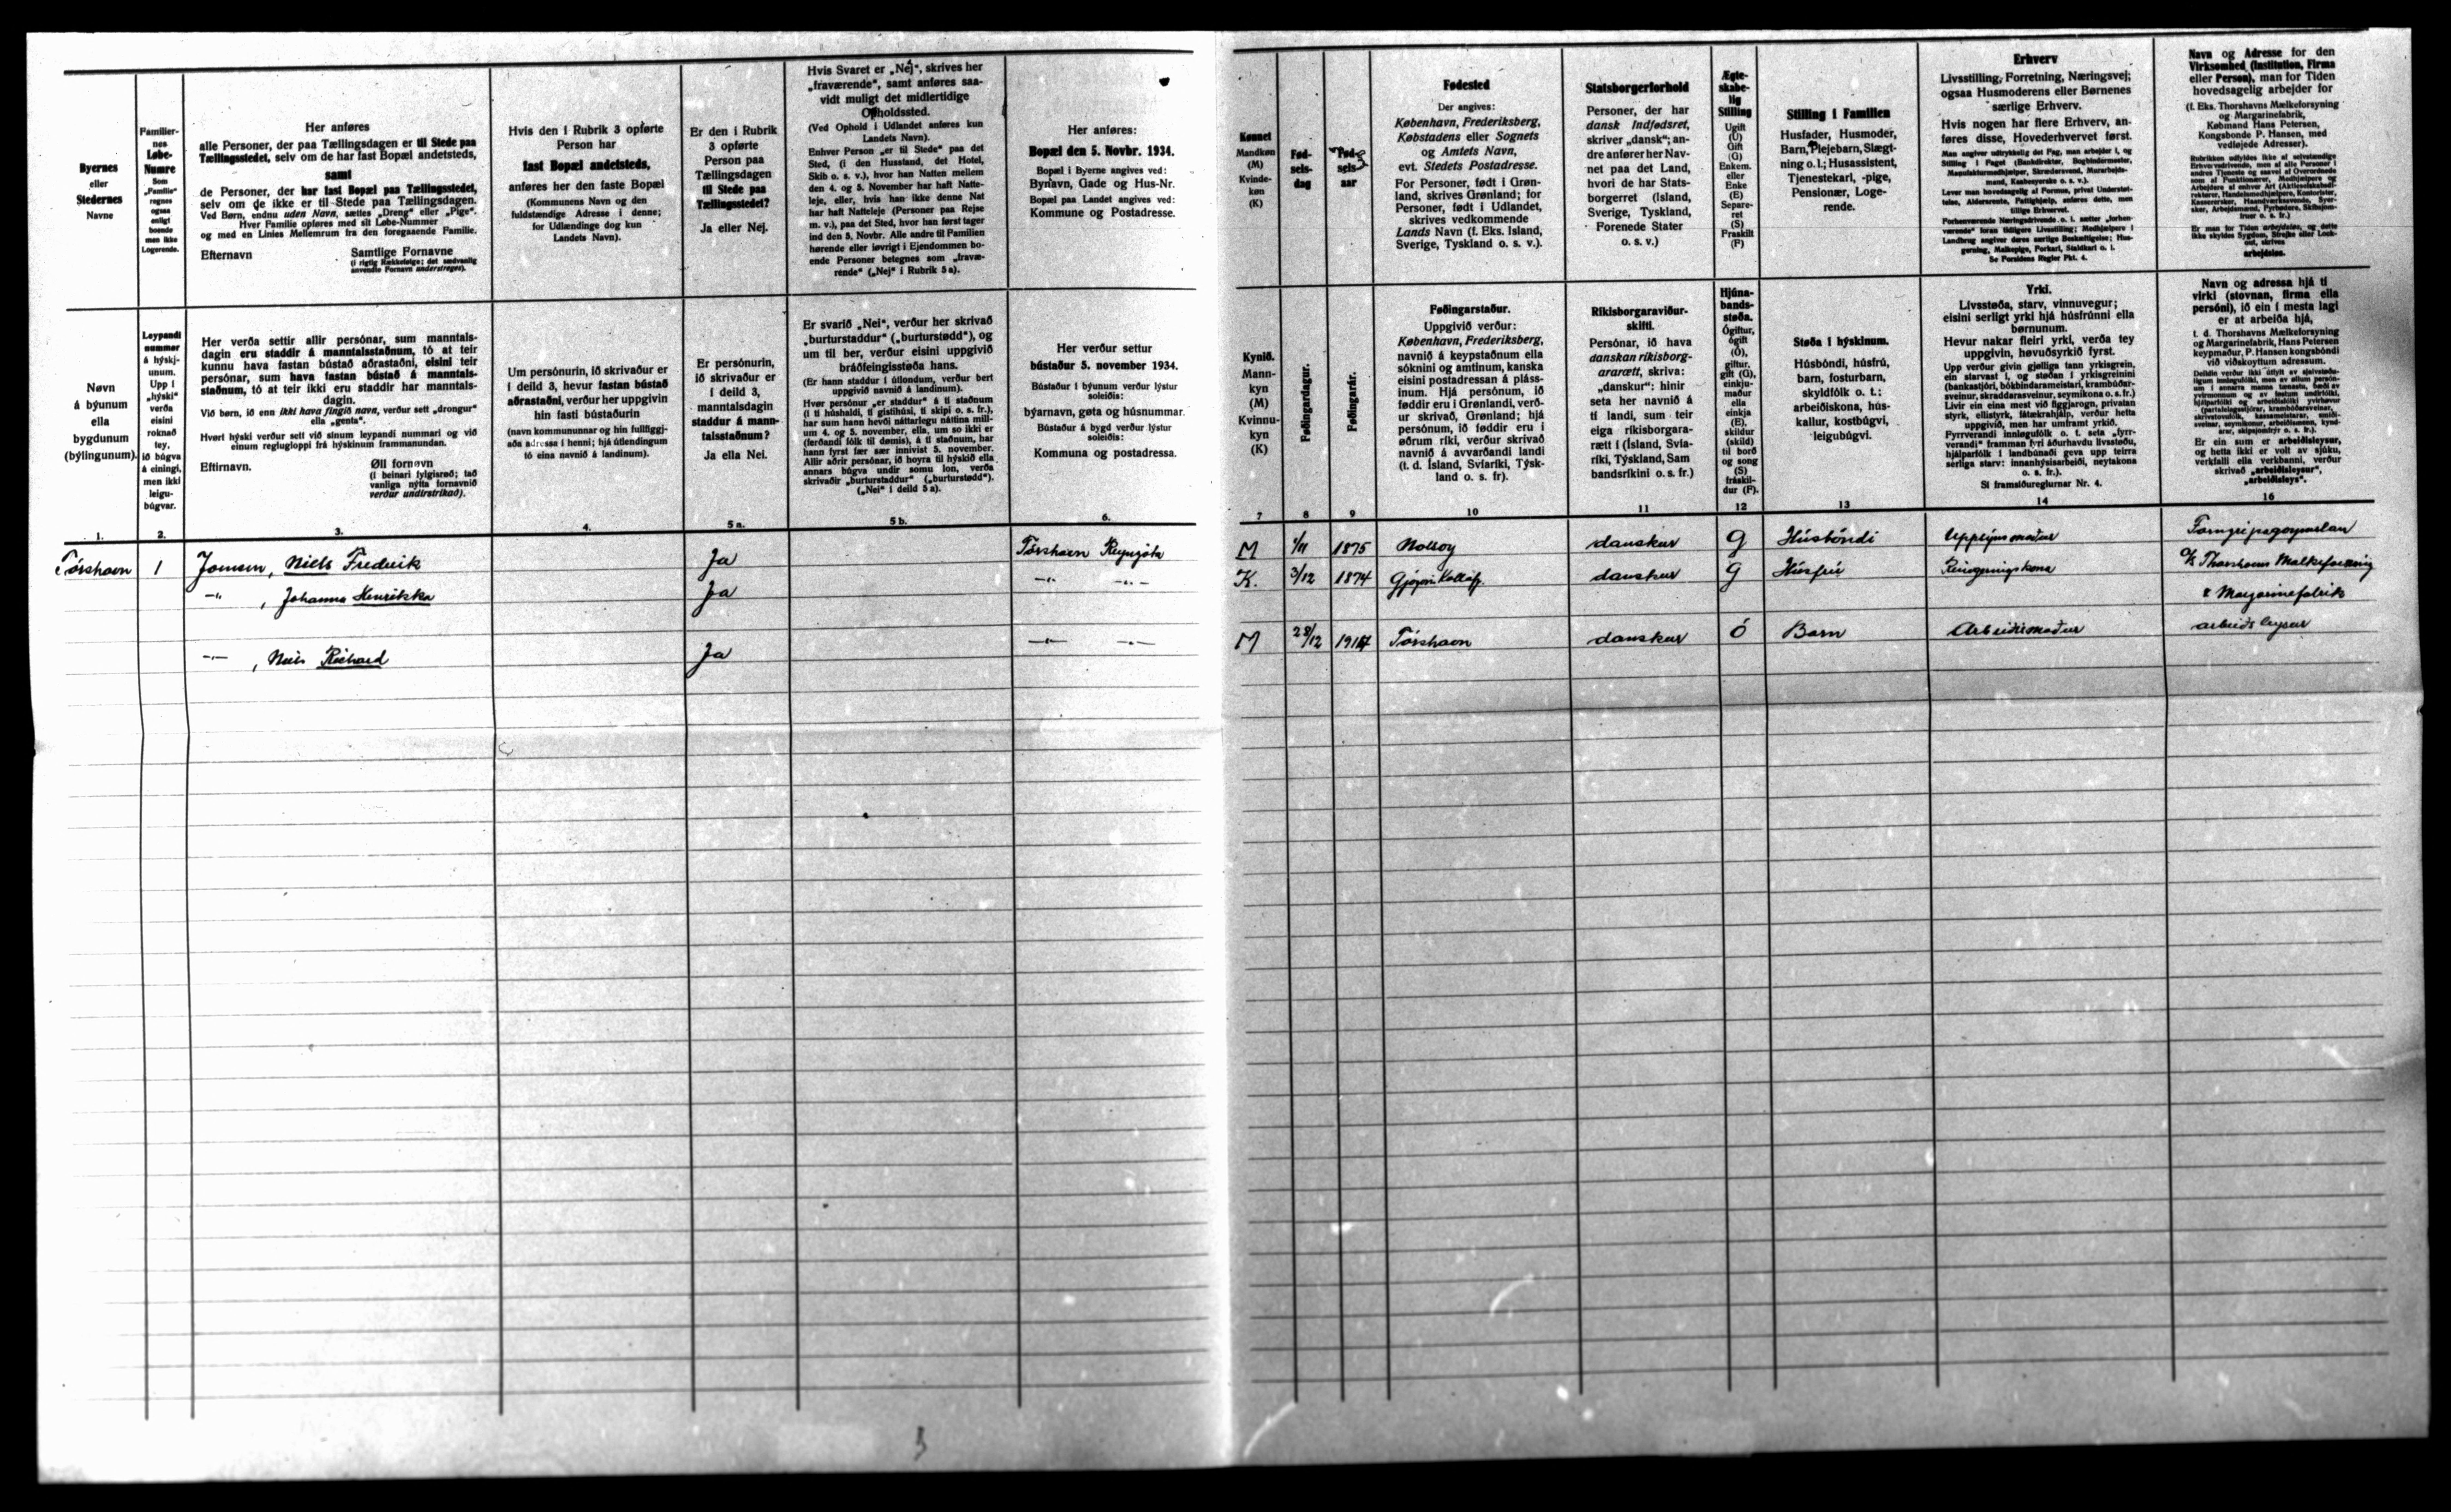 Byernes
eller
Stedernes
Navne
Familier-
nes
Løbe-
Numre
Som
„Familie“
regnes
ogsaa
enligt
boende
men ikke
Logerende.
Her anføres
alle Personer, der paa Tællingsdagen er til Stede paa
Tællingsstedet, selv om de har fast Bopæl andetsteds,
samt
de Personer, der har fast Bopæl paa Tællingsstedet,
selv om de ikke er til Stede paa Tællingsdagen.
Ved Børn, endnu uden Navn, sættes „Dreng“ eller „Pige“.
Hver Familie opføres med sit Løbe-Nummer
og med en Linies Mellemrum fra den foregaaende Familie.
Efternavn
Samtlige Fornavne
(i rigtig Rækkefølge; det sædvanlig
anvendte Fornavn understreges).
Hvis den i Rubrik 3 opførte
Person har
fast Bopæl andetsteds,
anføres her den faste Bopæl
(Kommunens Navn og den
fuldstændige Adresse i denne;
for Udlændinge dog kun
Landets Navn).
Er den i Rubrik
3 opførte
Person paa
Tællingsdagen
til Stede paa
Tællingsstedet?
Ja eller Nej.
Hvis Svaret er „Nej“, skrives her
„fraværende“, samt anføres saa-
vidt muligt det midlertidige
Opholdssted.
(Ved Ophold i Udlandet anføres kun
Landets Navn).
Enhver Person „er til Stede“ paa det
Sted, (i den Husstand, det Hotel,
Skib o. s. v.), hvor han Natten mellem
den 4. og 5. November har haft Natte-
leje, eller, hvis han ikke denne Nat
har haft Natteleje (Personer paa Rejse
m. v.), paa det Sted, hvor han først tager
ind den 5. Novbr. Alle andre til Familien
hørende eller iøvrigt i Ejendommen bo-
ende Personer betegnes som „fravæ-
rende“ („Nej“ i Rubrik 5a).
Her anføres:
Bopæl den 5. Novbr. 1934.
Bopæl i Byerne angives ved:
Bynavn, Gade og Hus-Nr.
Bopæl paa Landet angives ved:
Kommune og Postadresse.
Kønnet
Mandkøn
(M)
Kvinde-
køn
(K)
Fød-
sels-
dag
Fød-
sels-
aar
Fødested
Der angives:
København, Frederiksberg,
Købstadens eller Sognets
og Amtets Navn,
evt. Stedets Postadresse.
For Personer, født i Grøn-
land, skrives Grønland; for
Personer, født i Udlandet,
skrives vedkommende
Lands Navn (f. Eks. Island,
Sverige, Tyskland o. s. v.).
Statsborgerforhold
Personer, der har
dansk Indfødsret,
skriver „dansk“; an-
dre anfører her Nav-
net paa det Land,
hvori de har Stats-
borgerret (Island,
Sverige, Tyskland,
Forenede Stater
o. s. v.)
Ægte-
skabe-
lig
Stilling
Ugift
(U)
Gift
(G)
Enkem.
eller
Enke
(E)
Separe-
ret
(S)
Fraskilt
(F)
Stilling i Familien
Husfader, Husmoder,
Barn, Plejebarn, Slægt-
ning o. l.; Husassistent,
Tjenestekarl, -pige,
Pensionær, Loge-
rende.
Erhverv
Livsstilling, Forretning, Næringsvej;
ogsaa Husmoderens eller Børnenes
særlige Erhverv.
Hvis nogen har flere Erhverv, an-
føres disse, Hovederhvervet først.
Man angiver udtrykkelig det Fag, man arbejder i, og
Stilling i Faget (Bankdirektør, Bogbindermester,
Manufakturmedhjælper, Skræddersvend, Murarbejds-
mand, Kasbesyerske o. s. v.).
Lever man hovedsagelig af Formue, privat Understøt-
telse, Aldersrente, Fattighjælp, anføres dette, men
tillige Erhvervet.
Forhenværende Næringsdrivende o. l. sætter „forhen-
værende“ foran tidligere Livsstilling; Medhjælpere i
Landbrug angiver deres særlige Beskæftigelse; Hus-
gerning, Malkepige, Forkarl, Staldkarl o. l.
Se Forsidens Regler Pkt. 4.
Navn og Adresse for den
Virksomhed (Institution, Firma
eller Person), man for Tiden
hovedsagelig arbejder for
(f. Eks. Thorshavns Mælkeforsyning
og Margarinefabrik,
Købmand Hans Petersen,
Kongsbonde P. Hansen, med
vedføjede Adresser).
Er man for Tiden arbejdsløs, og dette
ikke skyldes Sygdom, Strejke eller Lock-
out, skrives
arbejdsløs.
Nøvn
á býunum
ella
bygdunum
(býlingunum).
Leypandi
nummar
á hýskj-
unum.
Upp í
„hýski“
verða
eisini
roknað
tey,
ið búgva
á einingi,
men ikki
leigu-
búgvar.
Her verða settir allir persónar, sum manntals-
dagin eru staddir á manntalsstaðnum, tó at teir
kunnu hava fastan bústað aðrastaðni, eisini teir
persónar, sum hava fastan bústað á manntals-
staðnum, tó at teir ikki eru staddir har manntals-
dagin.
Við børn, ið enn ikki hava fingið navn, verður sett „drongur“
ella „genta“.
Hvørt hýski verður sett við sínum leypandi nummari og við
einum reglugloppi frá hýskinum frammanundan.
Eftirnavn.
Øll fornøvn
(í beinari fylgisrøð; tað
vanliga nýtta fornavnið
verður undirstrikað).
Um persónurin, ið skrivaður er
í deild 3, hevur fastan bústað
aðrastaðni, verður her uppgivin
hin fasti bústaðurin
(navn kommununnar og hin fullfiggj-
aða adressa í henni; hjá útlendingum
tó eina navnið á landinum).
Er persónurin,
ið skrivaður er
í deild 3,
manntalsdagin
staddur á mann-
talsstaðnum?
Ja ella Nei.
Er svarið „Nei“, verður her skrivað
„burturstaddur“ („burturstødd“), og
um til ber, verður eisini uppgivið
bráðfeingisstøða hans.
(Er hann staddur í útlondum, verður bert
uppgivið navnið á landinum).
Hvør persónur „er staddur“ á tí staðnum
(í tí húshaldi, tí gistihúsi, tí skipi o. s. fr.),
har sum hann hevði náttarlegu náttina mill-
um 4. og 5. november, ella, um so ikki er
(ferðandi fólk til dømis), á tí staðnum, har
hann fyrst fær sær innivist 5. november.
Allir aðrir persónar, ið hoyra til hýskið ella
annars búgva undir somu lon, verða
skrivaðir „burturstaddur“ („burturstødd“).
(„Nei“ í deild 5 a).
Her verður settur
bústaður 5. november 1934.
Bústaður í býunum verður lýstur
soleiðis:
býarnavn, gøta og húsnummar.
Bústaður á bygd verður lýstur
soleiðis:
Kommuna og postadressa.
Kynið.
Mann-
kyn
(M)
Kvinnu-
kyn
(K)
Føðingardagur.
Føðingarár.
Føðingarstaður.
Uppgivið verður:
København, Frederiksberg,
navnið á keypstaðnum ella
sóknini og amtinum, kanska
eisini postadressan á pláss-
inum. Hjá persónum, ið
føddir eru í Grønlandi, verð-
ur skrivað, Grønland; hjá
persónum, ið føddir eru í
øðrum ríki, verður skrivað
navnið á avvarðandi landi
(t. d. Ísland, Svíaríki, Týsk-
land o. s. fr).
Ríkisborgaraviður-
skifti.
Persónar, ið hava
danskan ríkisborg-
ararætt, skriva:
„danskur“; hinir
seta her navnið á
tí landi, sum teir
eiga ríkisborgara-
rætt í (Ísland, Svía-
ríki, Týskland, Sam
bandsríkini o. s. fr.)
Hjúna-
bands-
støða.
Ógiftur,
ógift
(Ó),
giftur,
gift (G),
einkju-
maður
ella
einkja
(E),
skildur
(skild)
til borð
og song
(S)
fráskil-
dur (F).
Støða í hýskinum.
Húsbóndi, húsfrú,
barn, fosturbarn,
skyldfólk o. t.;
arbeiðiskona, hús-
kallur, kostbúgvi,
leigubúgvi.
Yrki.
Livsstøða, starv, vinnuvegur;
eisini serligt yrki hjá húsfrúnni ella
børnunum.
Hevur nakar fleiri yrki, verða tey
uppgivin, høvuðsyrkið fyrst.
Upp verður givin gjølliga tann yrkisgrein,
ein starvast í, og støðan í yrkisgreinini
(bankastjóri, bókbindarameistari, krambúðar-
sveinur, skraddarasveinur, seymikona o. s. fr.)
Livir ein eina mest við figgjarogn, privatan
styrk, ellistyrk, fátækrahjálp, verður hetta
uppgivið, men har umframt yrkið.
Fyrrverandi innløgufólk o. t. seta „fyrr-
verandi“ framman fyri áðurhavdu livsstøðu,
hjálparfólk í landbúnaði geva upp teirra
serliga starv: innanhýsisarbeiði, neytakona
o. s. fr.).
Sí framsíðureglurnar Nr. 4.
Navn og adressa hjá tí
virki (stovnan, firma ella
persóni), ið ein í mesta lagi
er at arbeiða hjá,
t. d. Thorshavns Mælkeforsyning
og Margarinefabrik, Hans Petersen
keypmaður, P. Hansen kongsbóndi
við viðskoyttum adressum.
Er ein sum er arbeiðsleysur,
og hetta ikki er volt av sjúku,
verkfalli ella verkbanni, verður
skrivað „arbeiðsleysur“,
„arbeiðsleys“.
1. 2. 3. 4. 5 a. 5 b. 6. 7 8 9 10 11 12 13 14 16
Tórshavn 1 Joensen, Niels Frederik Ja Tórshavn Reyngøta M 1/11 1875 Nolsoy danskur G Húsbóndi
—"— , Johanna Henrikka Ja —"— —"— K. 3/12 1874 Gjógv danskur G Húsfrú Reingerningskona
% Thorshavns Mælkeforsyning
& Margarinefabrik
—"— , Niels Richard Ja —"— —"— M 28/12 1914 Tórshavn danskur Ó Barn Arbeiðsmaður arbeiðsleysur
3